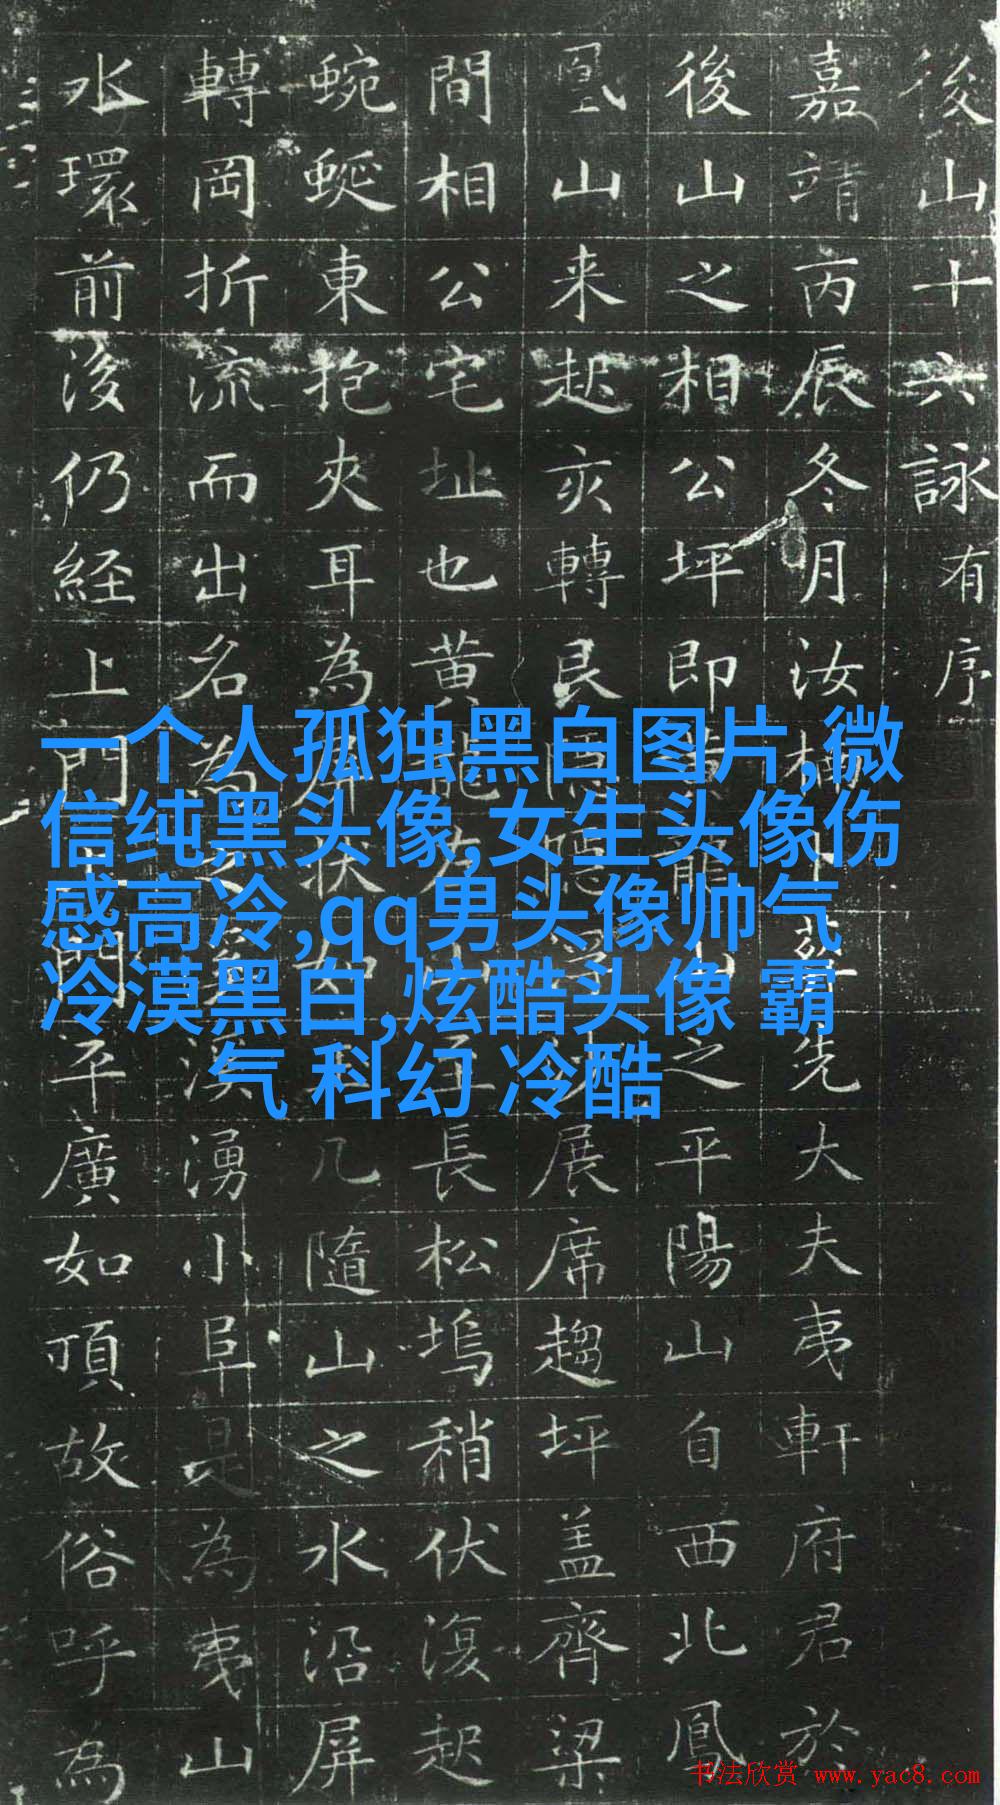 後山十六詠有序
嘉靖丙辰冬月汝楠卜葬先大夫夷軒府君於
後山之相公坪即黄龍山之平陽山自西北鳳
凰山来起亥轉艮隱展席趨坪盖齊梁
間相公宅址也黄龍山長松塢稍伏復起
蜿蜒東抱夾耳為屏如几隨山之水沿屏
轉岡折流而出名為溪湧小阜是為夷山
水環前後仍經上門門平廣如頂故俗呼為
一个人孤独黑白图片,微
信纯黑头像,女生头像伤
感高冷,qq男头像帅气
冷漠黑白,炫酷头像 霸
气 科幻 冷酷
书法欣赏 www.yac8.com